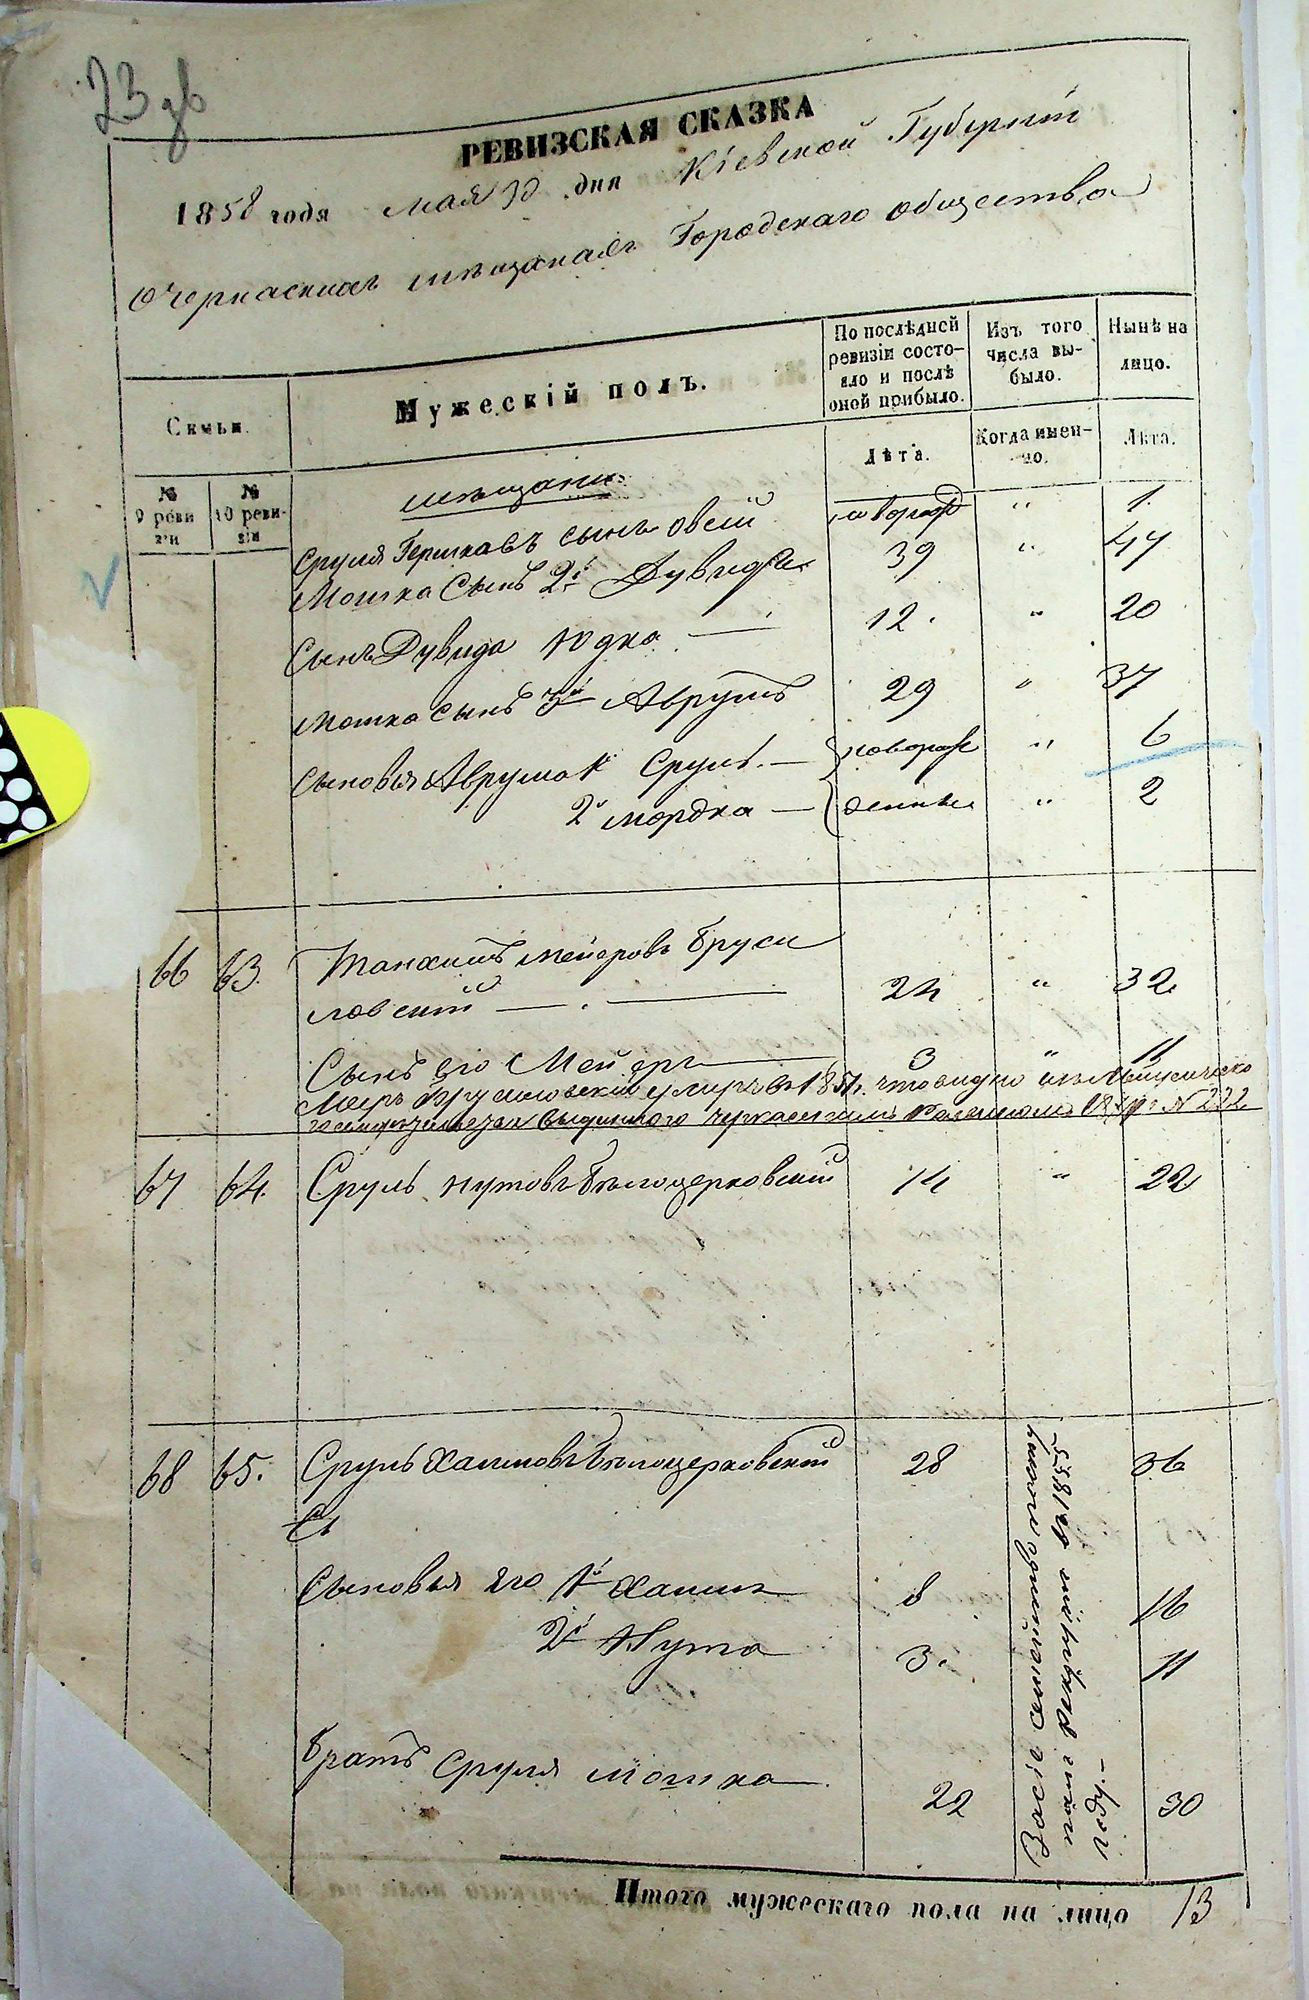 23
РЕВИЗСКАЯ СКАЗКА
1858 года мая 30 дня Кіевской Губерніи
О Черкаскихъ мѣщанахъ Городскаго общества
Семьи.
Мужескій полъ.
По послѣдней ревизіи состояло и послѣ оной прибыло.
Изъ того числа выбыло.
Нынѣ на лицо.
№ 9 ревизіи
№ 10 ревизіи
Лѣта.
Когда именно.
Лѣта.
мѣщане.
Сруля Гершкавъ сынъ Овсій новорож " 1.
Мошка Сынъ 2й Дувидъ 39 " 47
Сынъ Дувида Юдко — 12. " 20
Мошка сынъ 3й Аврумъ 29 " 37
Сыновья Аврума 1й Сруль. — новорож " 6
2й Мордка — денные " 2
66 63. Танхимъ Мейеровъ Бруси
ловскій — . — 24 " 32
Сынъ его Мейеръ — 3 " 11
Мееръ Брусиловскій умиръ въ 185 г. что видно изъ
выданнаго черкаскимъ № 222
67 64. Сруль Нутовъ Бѣлоцерковскій 14 " 22
68 65. Сруль Хаимовъ Бѣлоцерковскій 28 36
Сы
Сыновья его 1й Хаимъ 8 16
2й Нута 3. 11
Братъ Сруля Мошка 22 30
году. —
Итого мужескаго пола на лицо 13